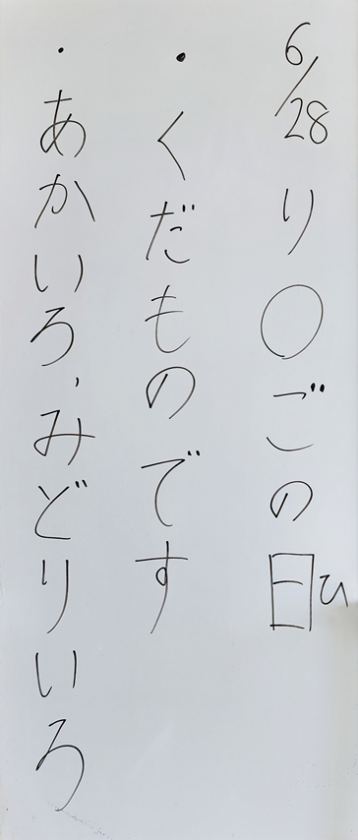 6/28 り〇ごの日ひ
・くだものです
・あかいろ、みどりいろ